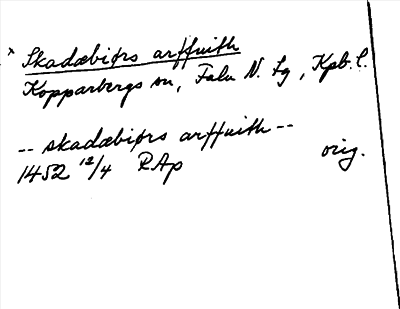 Skadæbiørs arffuith
Kopparbergs sn, Falu N. Lg, Kpb. l.
-- skadæbiørs arffuith --
1452 12/4 RAp orig.